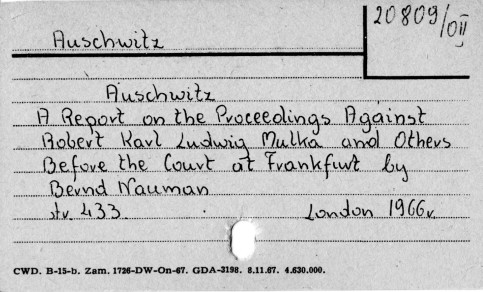 20809/OII
Auschwitz
Auschwitz
A Report on the Proceedings Against
Robert Karl Ludwig Mulka and Others
Before the Court at Frankfurt by
Bernd Nauman
str. 433. London 1966r.
CWD. B-15-b. Zam. 1726-DW-On-67. GDA-3198. 8.11.67. 4.630.000.